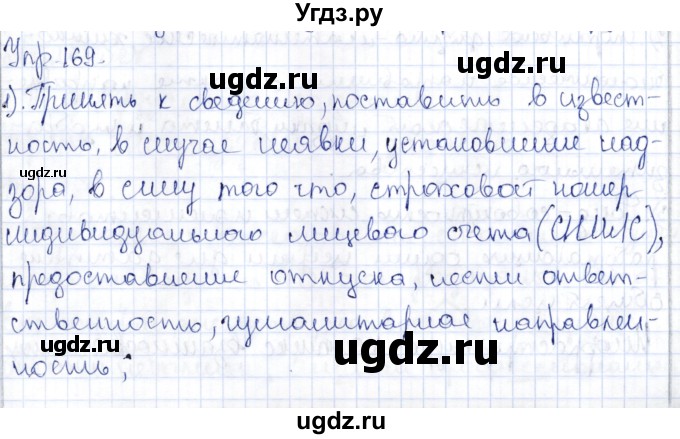 Угдз.ру
Упр. 169.
ugdz.ru
ugdz.ru
1). Принять к сведению, поставить в извест-
ность, в случае неявки, установление над-
ugdz.ru
ugdz.ru
зора, в силу того что, страховой номер
индивидуального лицевого счета (СНИЛС),
предоставление отпуска, нести ответ-
ственность, гуманитарная направлен-
ugdz.ru
ugdz.ru
ность;
ugdz.ru